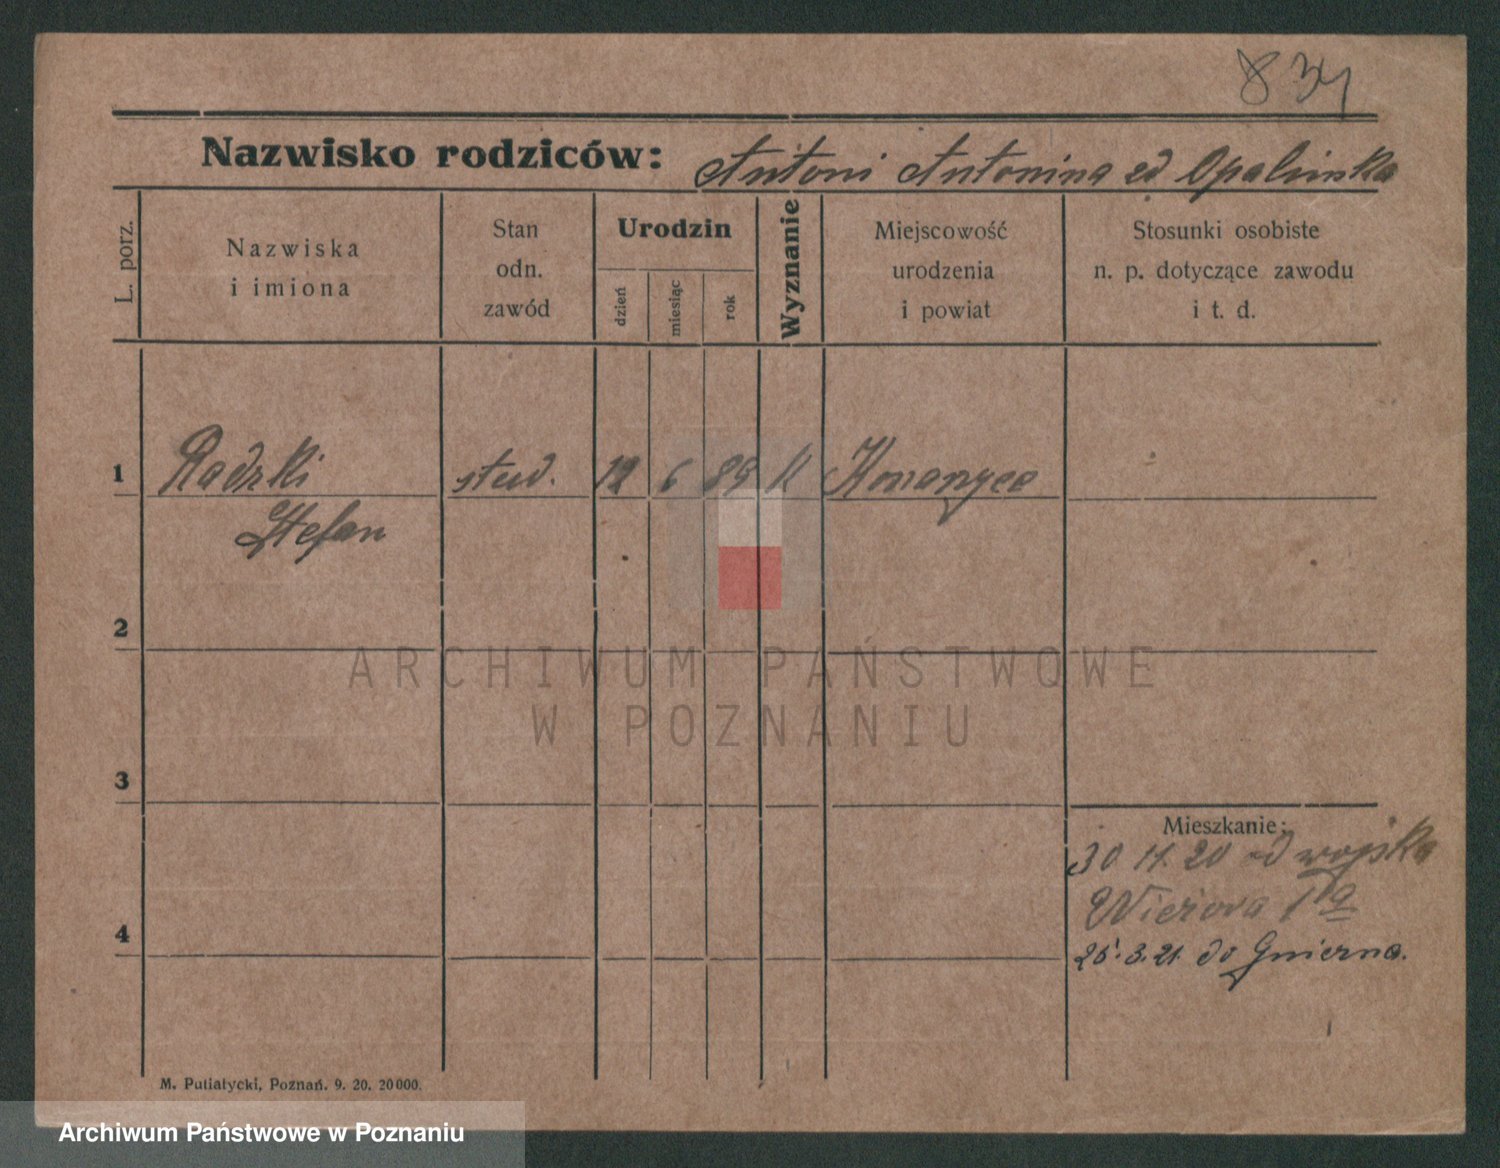 834
Nazwisko rodziców: Antoni Antonina Opalinska
L. porz.
Nazwiska
i imiona
Stan
odn.
zawód
Urodzin
dzień
miesiąc
rok
Wyznanie
Miejscowość
urodzenia
i powiat
Stosunki osobiste
n. p. dotyczące zawodu
i t. d.
1 Radzki stud. 12 6 89 K
Stefan
2
ARCHIWUM PAŃSTWOWE
W POZNANIU
3
Mieszkanie:
30 20 od wojska
4
25. 3. 21. do Gniezna.
M. Putiatycki, Poznań. 9. 20. 20000.
Archiwum Państwowe w Poznaniu